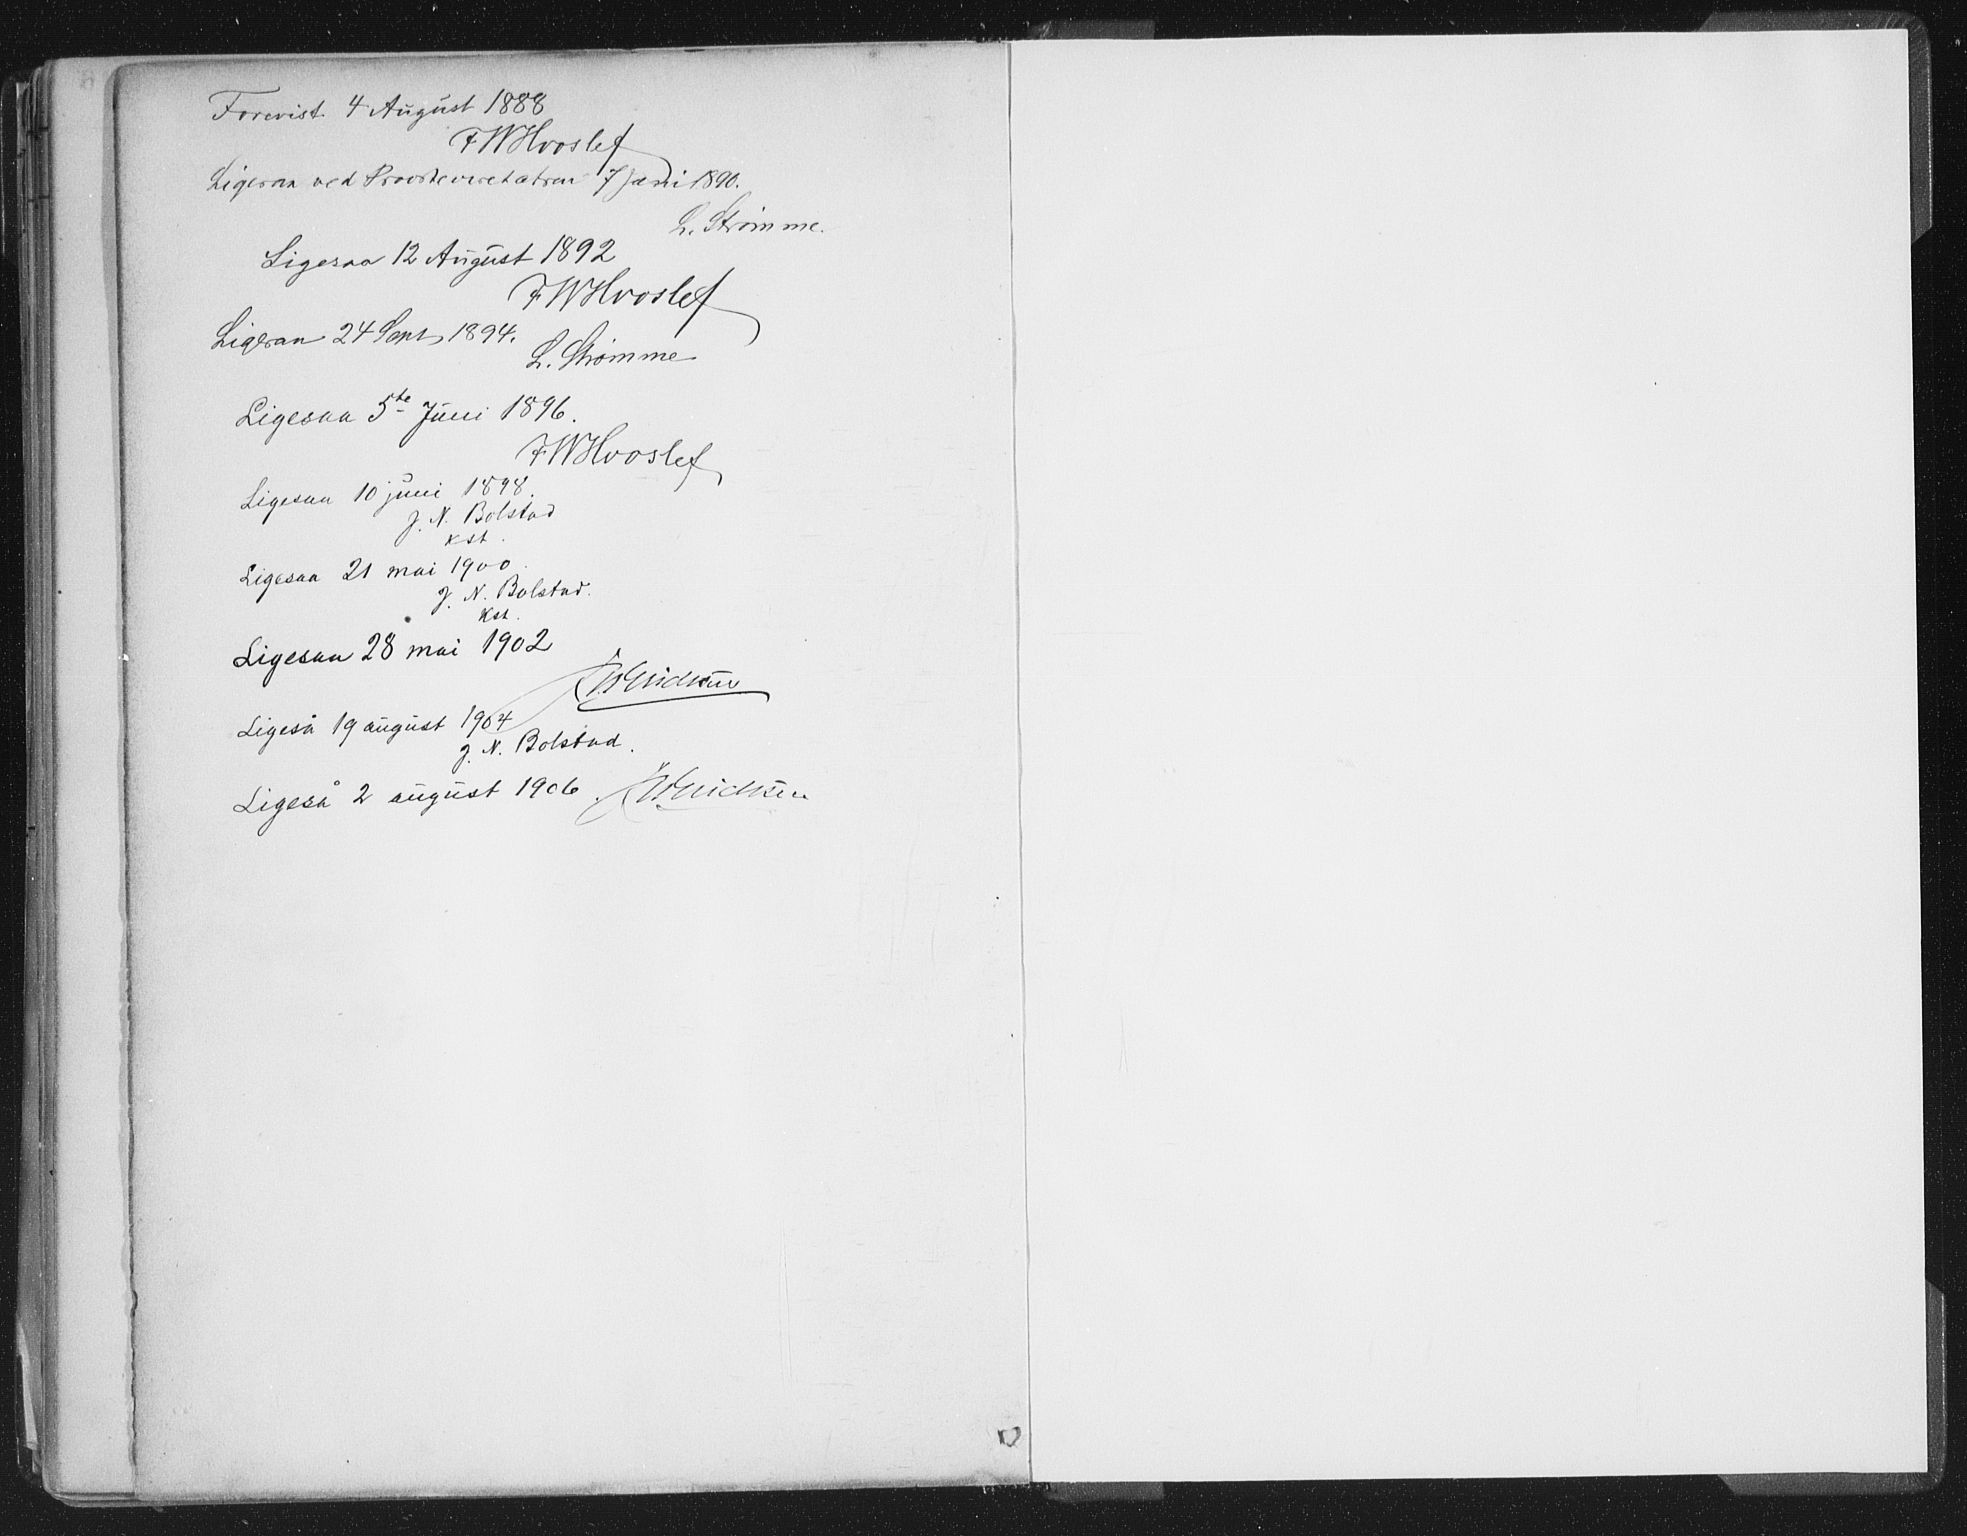 Forevist 4 August 1888
FWHvoslef
Ligesaa ved Provstevisitatsen 7 Juni 1890.
L. Strømme.
Ligesaa 12 August 1892
FWHvoslef
Ligesaa 24 Sept 1894.
L. Strømme
Ligesaa 5te Juni 1896.
FWHvoslef
Ligesaa 10 juni 1898.
J. N. Bolstad
kst.
Ligesaa 21 mai 1900.
J. N. Bolstad.
kst.
Ligesaa 28 mai 1902
Ligeså 19 august 1904
J. N. Bolstad.
Ligeså 2 august 1906.